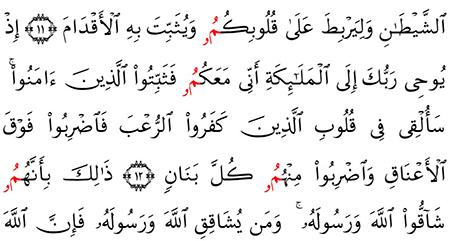 ٱلشَّيْطَٰنِ وَلِيَرْبِطَ عَلَىٰ قُلُوبِكُمُۥ وَيُثَبِّتَ بِهِ ٱلْأَقْدَامَ ﴿١١﴾ إِذْ
يُوحِى رَبُّكَ إِلَى ٱلْمَلَٰٓئِكَةِ أَنِّى مَعَكُمُۥ فَثَبِّتُوا۟ ٱلَّذِينَ ءَامَنُوا۟ ۚ
سَأُلْقِى فِى قُلُوبِ ٱلَّذِينَ كَفَرُوا۟ ٱلرُّعْبَ فَٱضْرِبُوا۟ فَوْقَ
ٱلْأَعْنَاقِ وَٱضْرِبُوا۟ مِنْهُمُۥ كُلَّ بَنَانٍ ﴿١٢﴾ ذَٰلِكَ بِأَنَّهُمُۥ
شَآقُّوا۟ ٱللَّهَ وَرَسُولَهُۥ ۚ وَمَن يُشَاقِقِ ٱللَّهَ وَرَسُولَهُۥ فَإِنَّ ٱللَّهَ